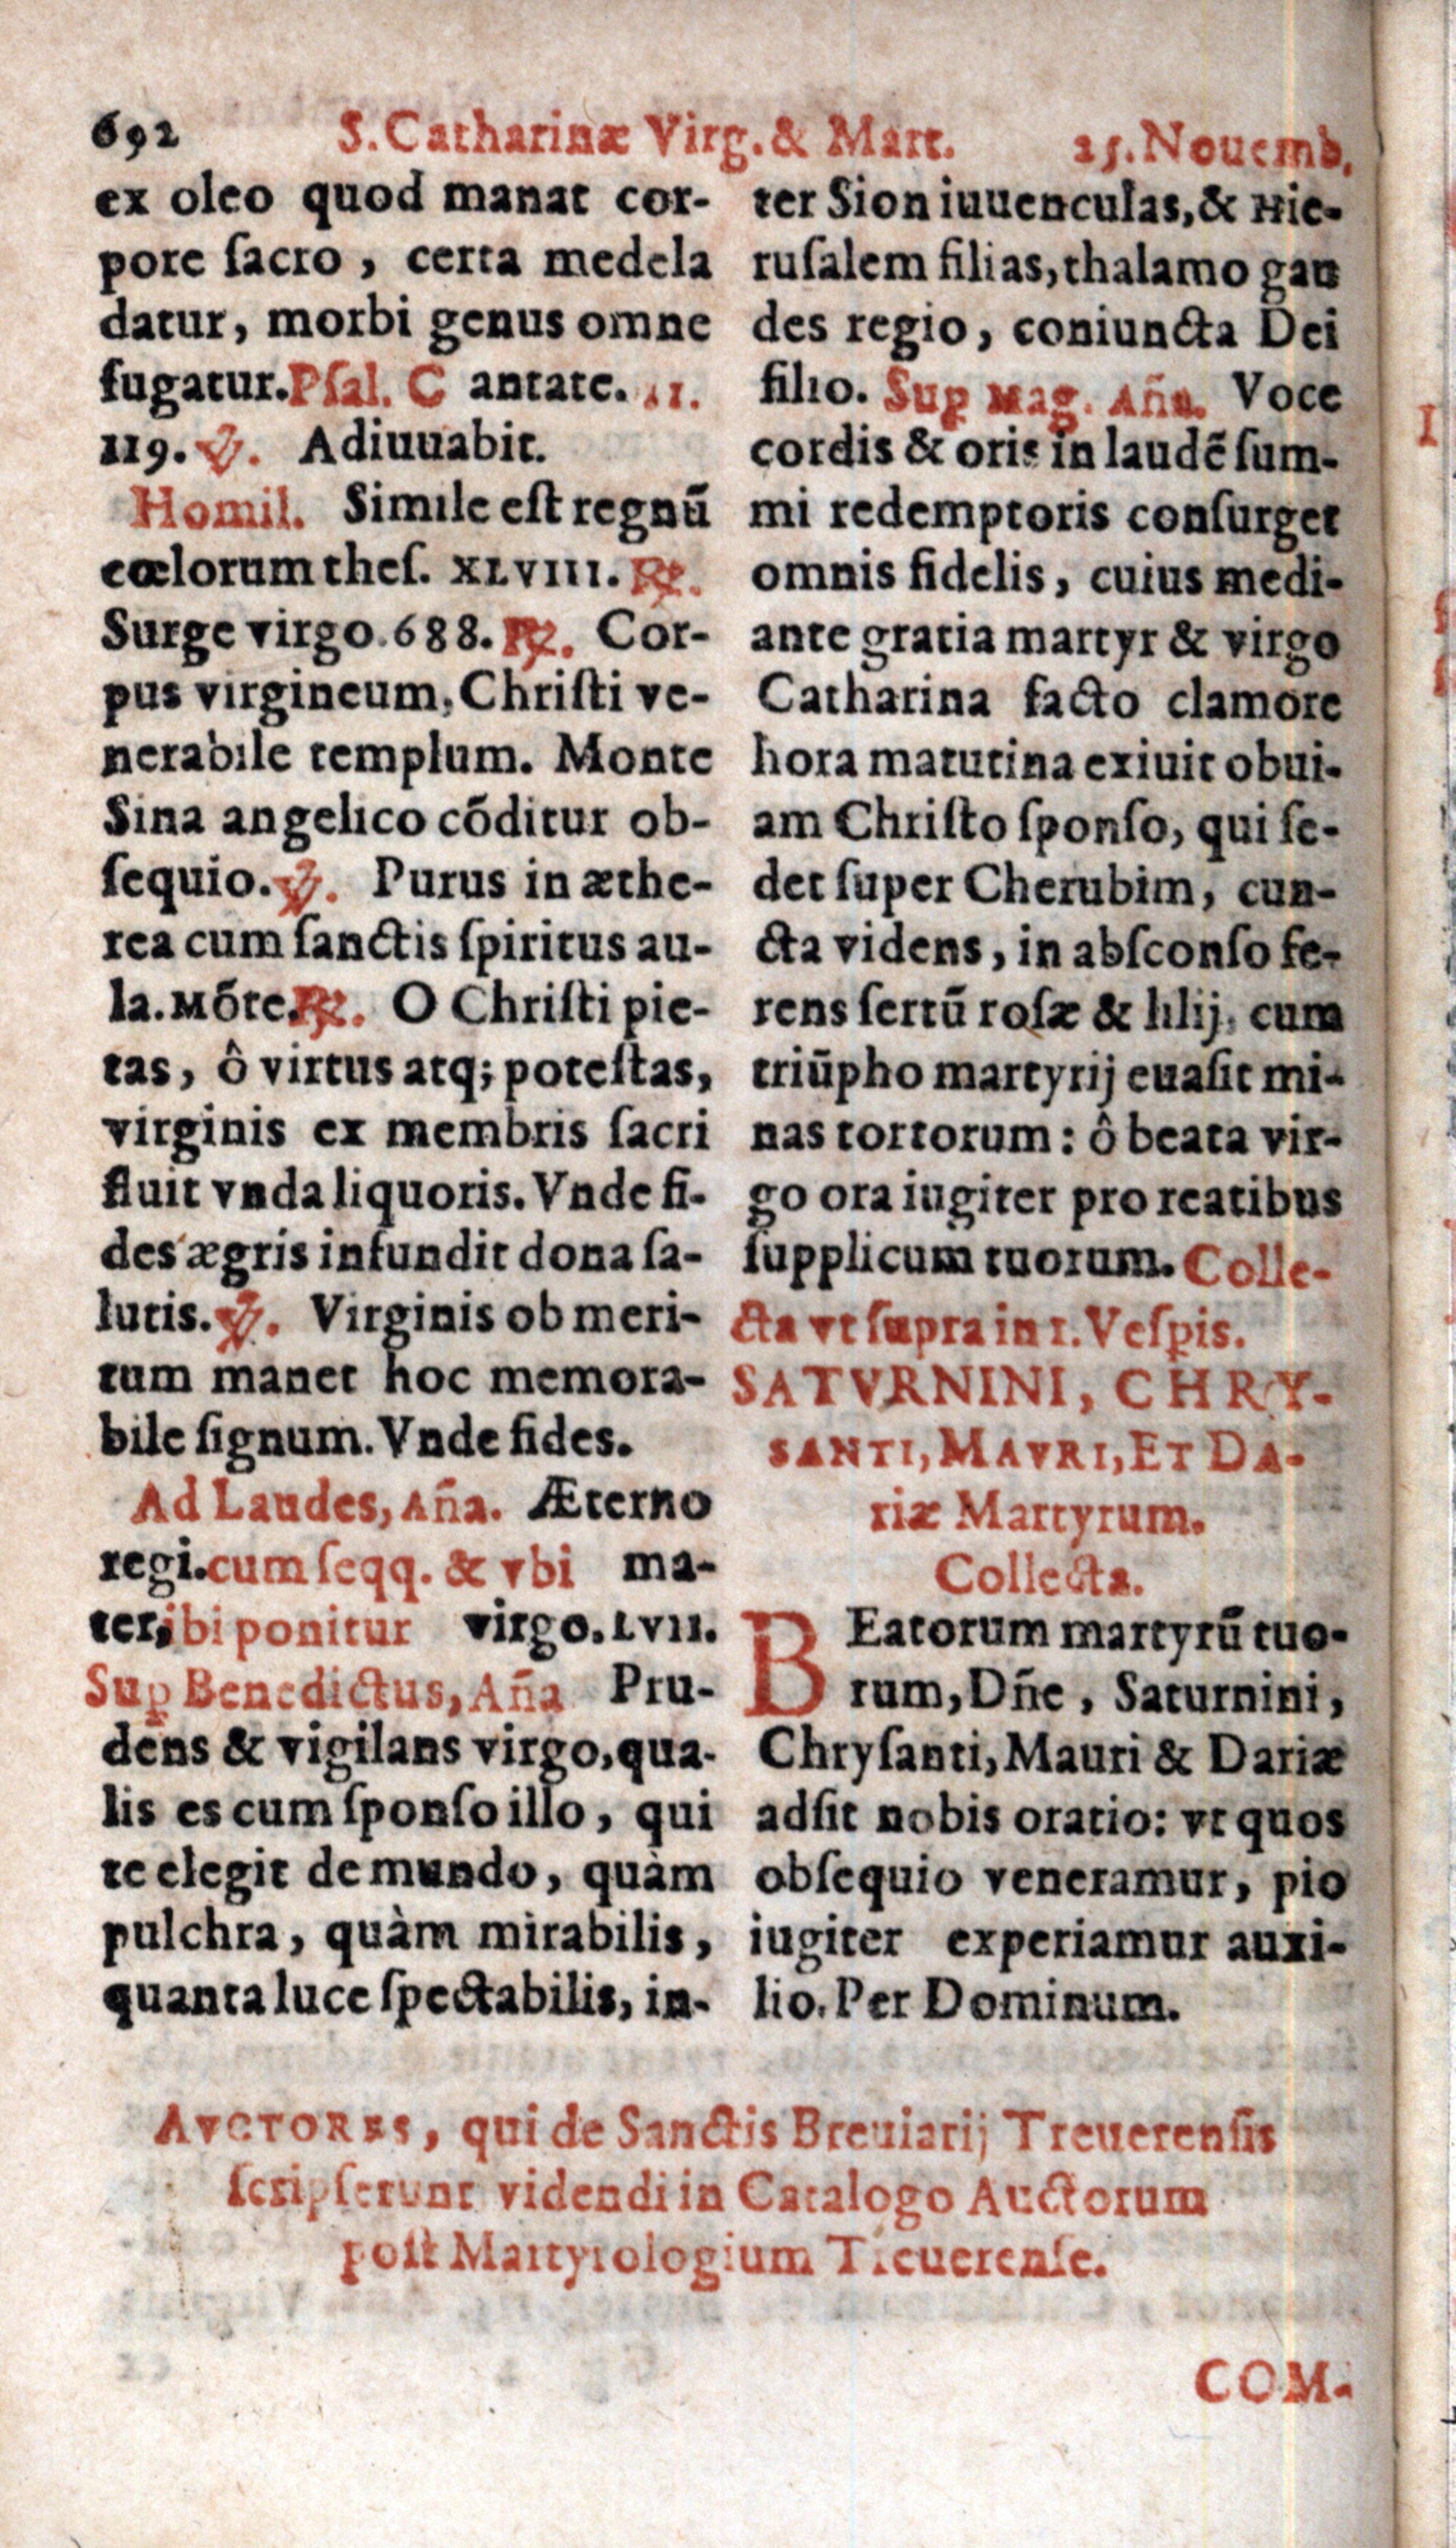 692 S. Catharinæ Virg. & Mart. 25. Nouemb.
ex oleo quod manat cor-
pore ſacro , certa medela
datur, morbi genus omne
fugatur. Pſal. C antate. 11.
119. ℣. Adiuuabit.
Homil. Simile eſt regnū
cœlorum theſ. XLVIII. ℟.
Surge virgo. 688. ℟. Cor-
pus virgineum, Chriſti ve-
nerabile templum. Monte
Sina angelico cōditur ob-
ſequio. ℣. Purus in æthe-
rea cum ſanctis ſpiritus au-
la. Mōte. ℟. O Chriſti pie-
tas, ô virtus atq; poteſtas,
virginis ex membris ſacri
fluit vnda liquoris. Vnde fi-
des ægris infundit dona ſa-
lutis. ℣. Virginis ob meri-
tum manet hoc memora-
bile ſignum. Vnde fides.
Ad Laudes, Aña. Æterno
regi. cum ſeqq. & vbi ma-
ter, ibi ponitur virgo. LVII.
Sup Benedictus, Aña Pru-
dens & vigilans virgo, qua-
lis es cum ſponſo illo, qui
te elegit de mundo, quàm
pulchra, quàm mirabilis,
quanta luce ſpectabilis, in-
ter Sion iuuenculas, & Hie-
ruſalem filias, thalamo gau
des regio, coniuncta Dei
filio. Sup Mag. Aña. Voce
cordis & oris in laudē ſum-
mi redemptoris conſurget
omnis fidelis, cuius medi-
ante gratia martyr & virgo
Catharina facto clamore
hora matutina exiuit obui-
am Chriſto ſponſo, qui ſe-
det ſuper Cherubim, cun-
cta videns, in abſconſo fe-
rens ſertū roſæ & lilij, cum
triūpho martyrij euaſit mi-
nas tortorum: ô beata vir-
go ora iugiter pro reatibus
ſupplicum tuorum. Colle-
cta vt ſupra in 1. Veſpis.
SATVRNINI, CHRY-
SANTI, MAVRI, ET DA-
riæ Martyrum.
Collecta.
BEatorum martyrū tuo-
rum, Dñe, Saturnini,
Chryſanti, Mauri & Dariæ
adſit nobis oratio: vt quos
obſequio veneramur, pio
iugiter experiamur auxi-
lio. Per Dominum.
AVCTORES, qui de Sanctis Breuiarij Treuerenſis
ſcripſerunt videndi in Catalogo Auctorum
poſt Martyrologium Treuerenſe.
COM-